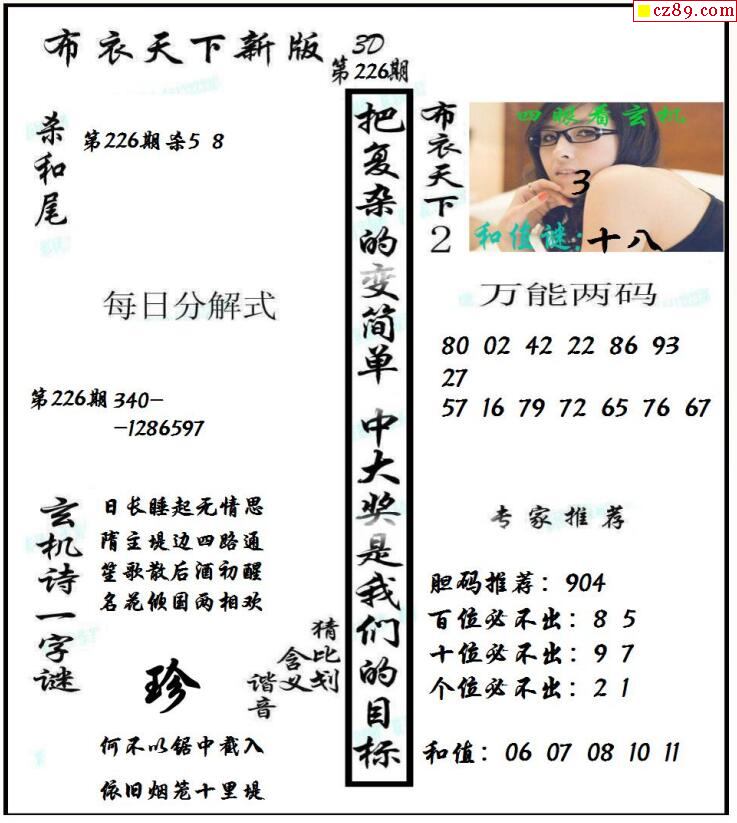 cz89.com
布衣天下新版
3D
第226期
杀和尾
第226期杀5 8
每日分解式
第226期 340-
-1286597
玄机诗一字谜
日长睡起无情思
隋主堤边四路通
笙歌散后酒初醒
名花倾国两相欢
珍
猜比划
含义
谐音
何不以锯中截入
依旧烟笼十里堤
把复杂的变简单 中大奖是我们的目标
布衣天下2
四眼看玄机
3
和值谜:十八
万能两码
80 02 42 22 86 93
27
57 16 79 72 65 76 67
专家推荐
胆码推荐：904
百位必不出：8 5
十位必不出：9 7
个位必不出：2 1
和值：06 07 08 10 11